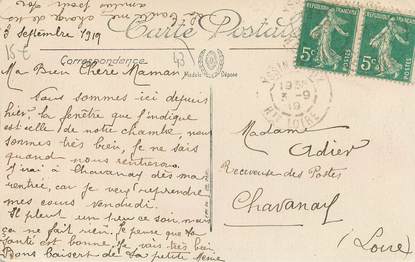 3 Septembre 1919
Carte Postale
15 €
43
Correspondance
Modèle Déposé
RÉPUBLIQUE FRANÇAISE
5c
POSTES
RÉPUBLIQUE FRANÇAISE
5c
POSTES
3-9
19
Hte LOIRE
Ma Bien Chère Maman
Nous sommes ici depuis
hier, la fenêtre que j'indique
est celle de notre chambre, nous
sommes très bien, je ne sais
quand nous rentrerons.
J'irai à Chavanay dès ma
rentrée, car je veux reprendre
mes cours vendredi.
Il pleut un peu ce soir, mais
ça ne fait rien, je pense que ta
santé est bonne. Je vais très bien
Bons baisers de ta petite
Madame
Adier
Receveuse des Postes
Chavanay
(Loire)